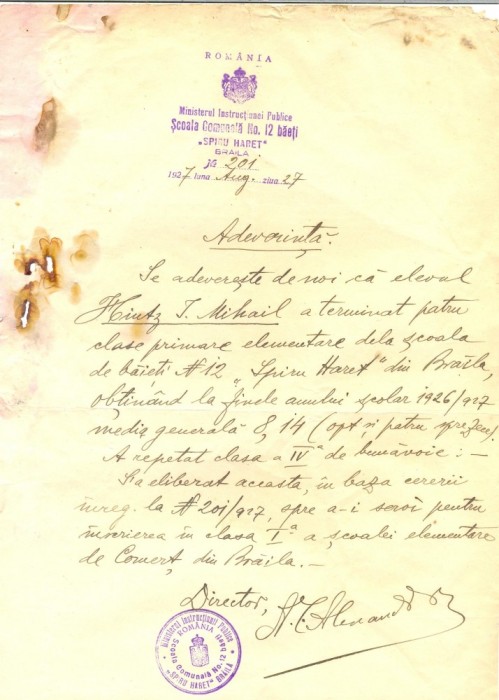 ROMÂNIA
Ministerul Instrucțiunei Publice
Școala Comunală No. 12 băeți
„SPIRU HARET"
BRAILA
№ 201
1927 luna Aug. ziua 27
Adeverință.
Se adeverește de noi că elevul
Hintz T. Mihail a terminat patru
clase primare elementare dela școala
de băieți № 12 „Spiru Haret" din Brăila,
obținând la finele anului școlar 1926/927
media generală 8,14 (opt și patru sprezece).
A repetat clasa a IVᵃ de bunăvoie: —
S'a eliberat aceasta, în baza cererii
înreg. la № 201/927, spre a-i servi pentru
înscrierea în clasa Iᵃ a școalei elementare
de Comerț din Brăila. —
Director,
Ministerul Instrucțiunii Publice
ROMÂNIA
Școala Comunală No. 12 băeți
"SPIRU HARET" BRAILA